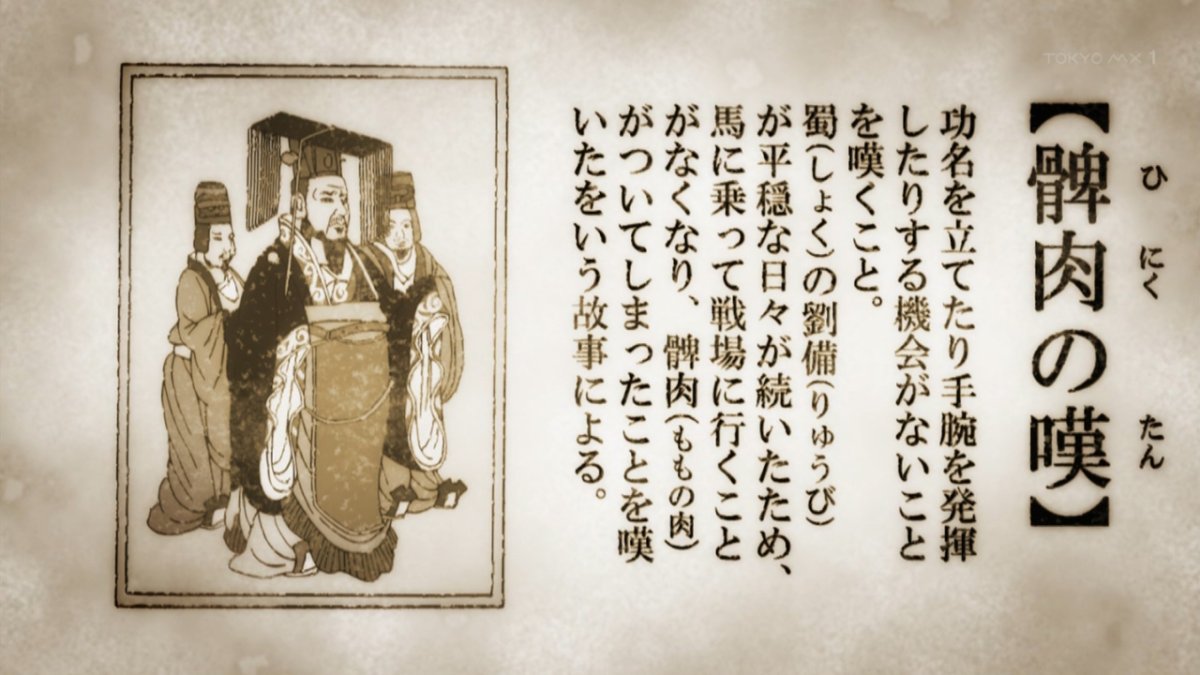 TOKYO MX 1
【髀肉の嘆】
ひ にく たん
功名を立てたり手腕を発揮
したりする機会がないこと
を嘆くこと。
蜀(しょく)の劉備(りゅうび)
が平穏な日々が続いたため、
馬に乗って戦場に行くこと
がなくなり、髀肉(ももの肉)
がついてしまったことを嘆
いたをいう故事による。